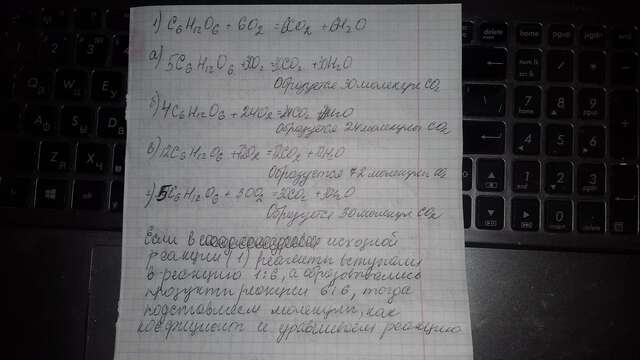 1) C₆H₁₂O₆ + 6O₂ = 6CO₂ + 6H₂O
а) 5C₆H₁₂O₆ + 30O₂ = 30CO₂ + 30H₂O
Образуется 30 молекул CO₂
б) 4C₆H₁₂O₆ + 24O₂ = 24CO₂ + 24H₂O
Образуется 24 молекулы CO₂
в) 12C₆H₁₂O₆ + 72O₂ = 72CO₂ + 72H₂O
Образуется 72 молекулы
г) 5C₆H₁₂O₆ + 30O₂ = 30CO₂ + 30H₂O
Образуется 30 молекул CO₂
Если в исходной
реакции (1) реагенты вступали
в реакцию 1:6, а образовывались
продукты реакции 6:6, тогда
подставляем молекулы, как
коефициент и уравниваем реакцию
delete
home
enter